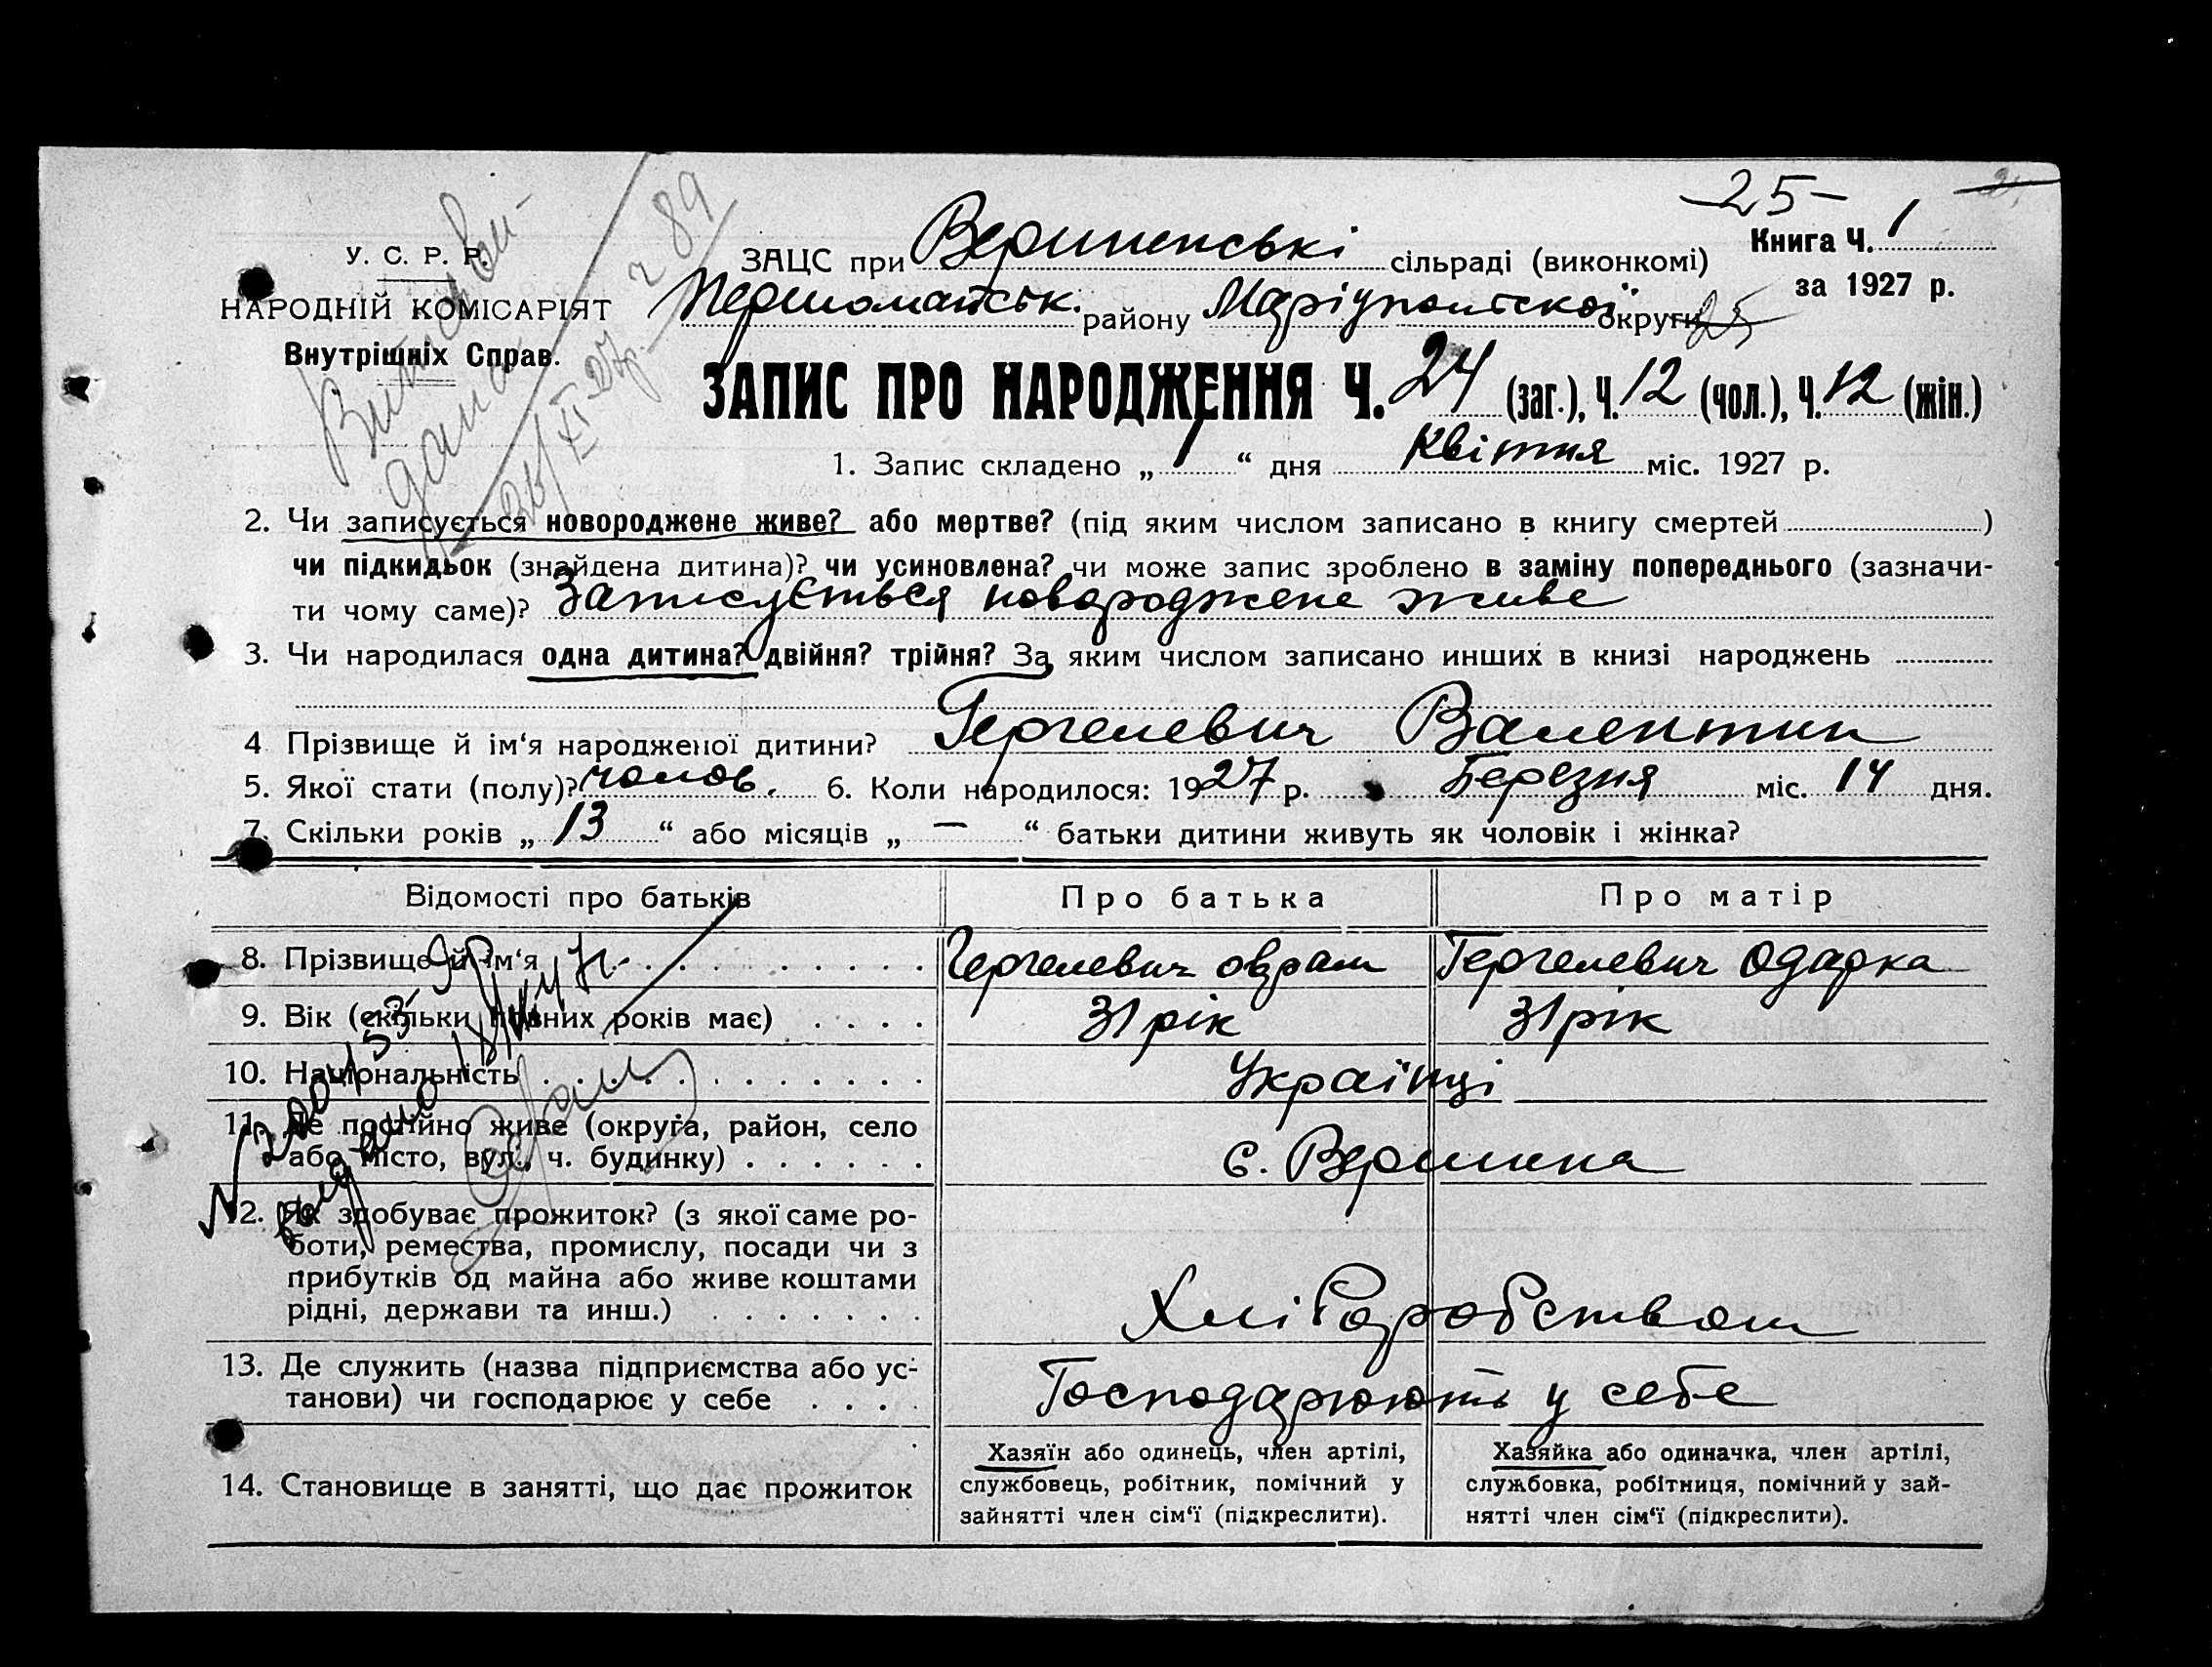 -25-
У. С. Р. Р.
НАРОДНІЙ КОМІСАРІЯТ
Внутрішніх Справ.
Витяг
дана
26/XI 27р. 289
ЗАЦС при Вершиненські сільраді (виконкомі)
Книга Ч. 1
за 1927 р.
Першомайськ. району Маріупольської округи 25
ЗАПИС ПРО НАРОДЖЕННЯ Ч. 24 (заг.), Ч. 12 (чол.), Ч. 12 (жін.)
1. Запис складено „ 1 “ дня Квітня міс. 1927 р.
2. Чи записується новороджене живе? або мертве? (під яким числом записано в книгу смертей )
чи підкидьок (знайдена дитина)? чи усиновлена? чи може запис зроблено в заміну попереднього (зазначи-
ти чому саме)? Записується новороджене живе
3. Чи народилася одна дитина? двійня? трійня? За яким числом записано инших в книзі народжень
4 Прізвище й ім‘я народженої дитини? Гергелевич Валентин
5. Якої стати (полу)? чолов. 6. Коли народилося: 1927 р. Березня міс. 14 дня.
7. Скільки років „ 13 “ або місяців „ — “ батьки дитини живуть як чоловік і жінка?
Відомості про батьків Про батька Про матір
8. Прізвище й ім‘я Гергелевич Оврам Гергелевич Одарка
9. Вік (скільки повних років має) 31 рік 31 рік
10. Національність Українці
11. Де постійно живе (округа, район, село
або місто, вул., ч. будинку) с. Вершина
12. Як здобуває прожиток? (з якої саме ро-
боти, ремества, промислу, посади чи з
прибутків од майна або живе коштами
рідні, держави та инш.) Хліборобством
13. Де служить (назва підприємства або ус-
танови) чи господарює у себе Господарюють у себе
14. Становище в занятті, що дає прожиток
Хазяїн або одинець, член артілі,
службовець, робітник, помічний у
зайнятті член сім‘ї (підкреслити).
Хазяйка або одиначка, член артілі,
службовка, робітниця, помічний у зай-
нятті член сім‘ї (підкреслити).